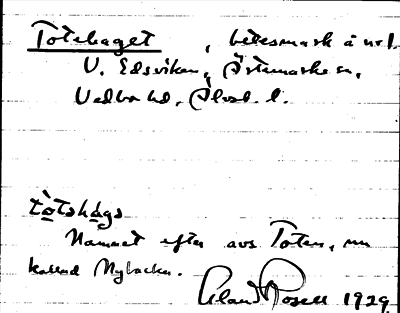 Totehaget, betesmark å nr 1.
V. Edsviken, Ärtemarks sn,
Vedbo hd, Älvsb. l.
tòtehágə
Namnet efter avs Toten, nu
kallad Nybacka.
Claus Rosell 1929